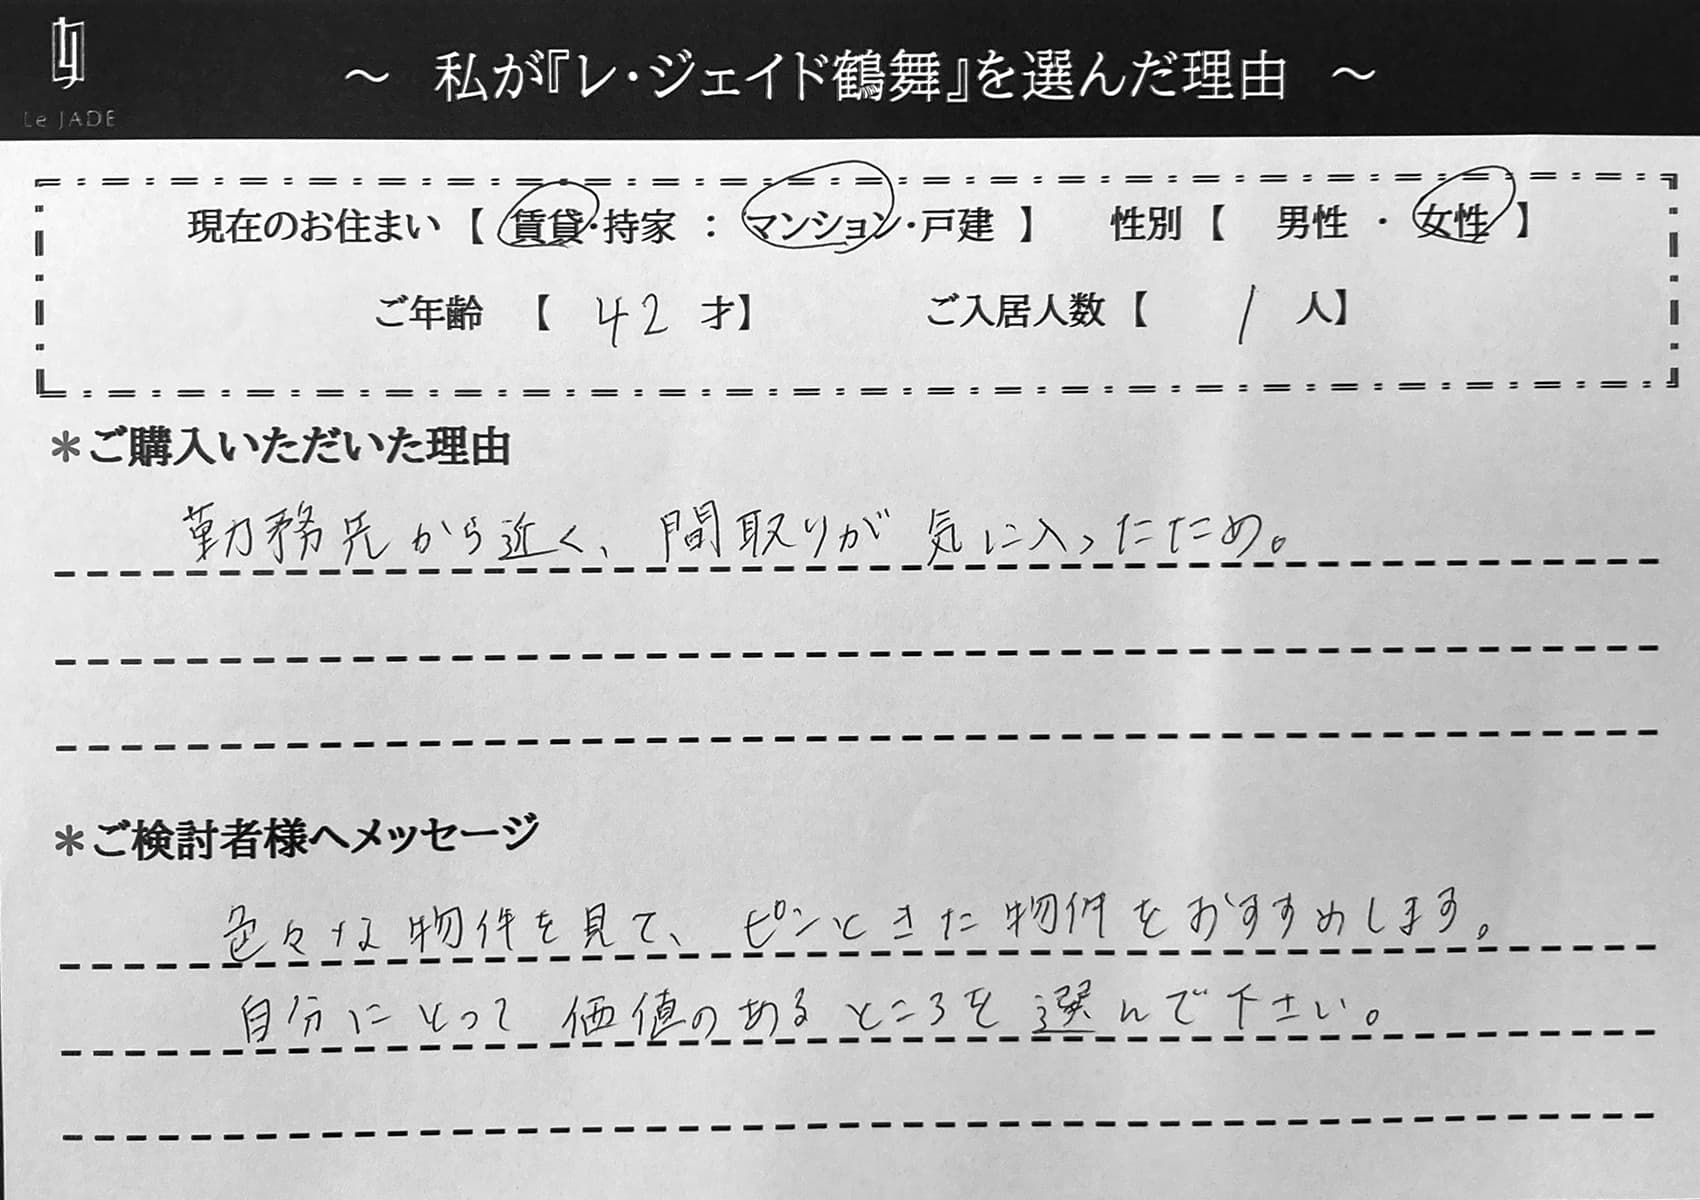 Le JADE
～ 私が『レ・ジェイド鶴舞』を選んだ理由 ～
現在のお住まい【 賃貸・持家 ： マンション・戸建 】 性別【 男性 ・ 女性 】
ご年齢 【 42 才】 ご入居人数【 1 人】
＊ご購入いただいた理由
勤務先から近く、間取りが気に入ったため。
＊ご検討者様へメッセージ
色々な物件を見て、ピンときた物件をおすすめします。
自分にとって価値のあるところを選んで下さい。